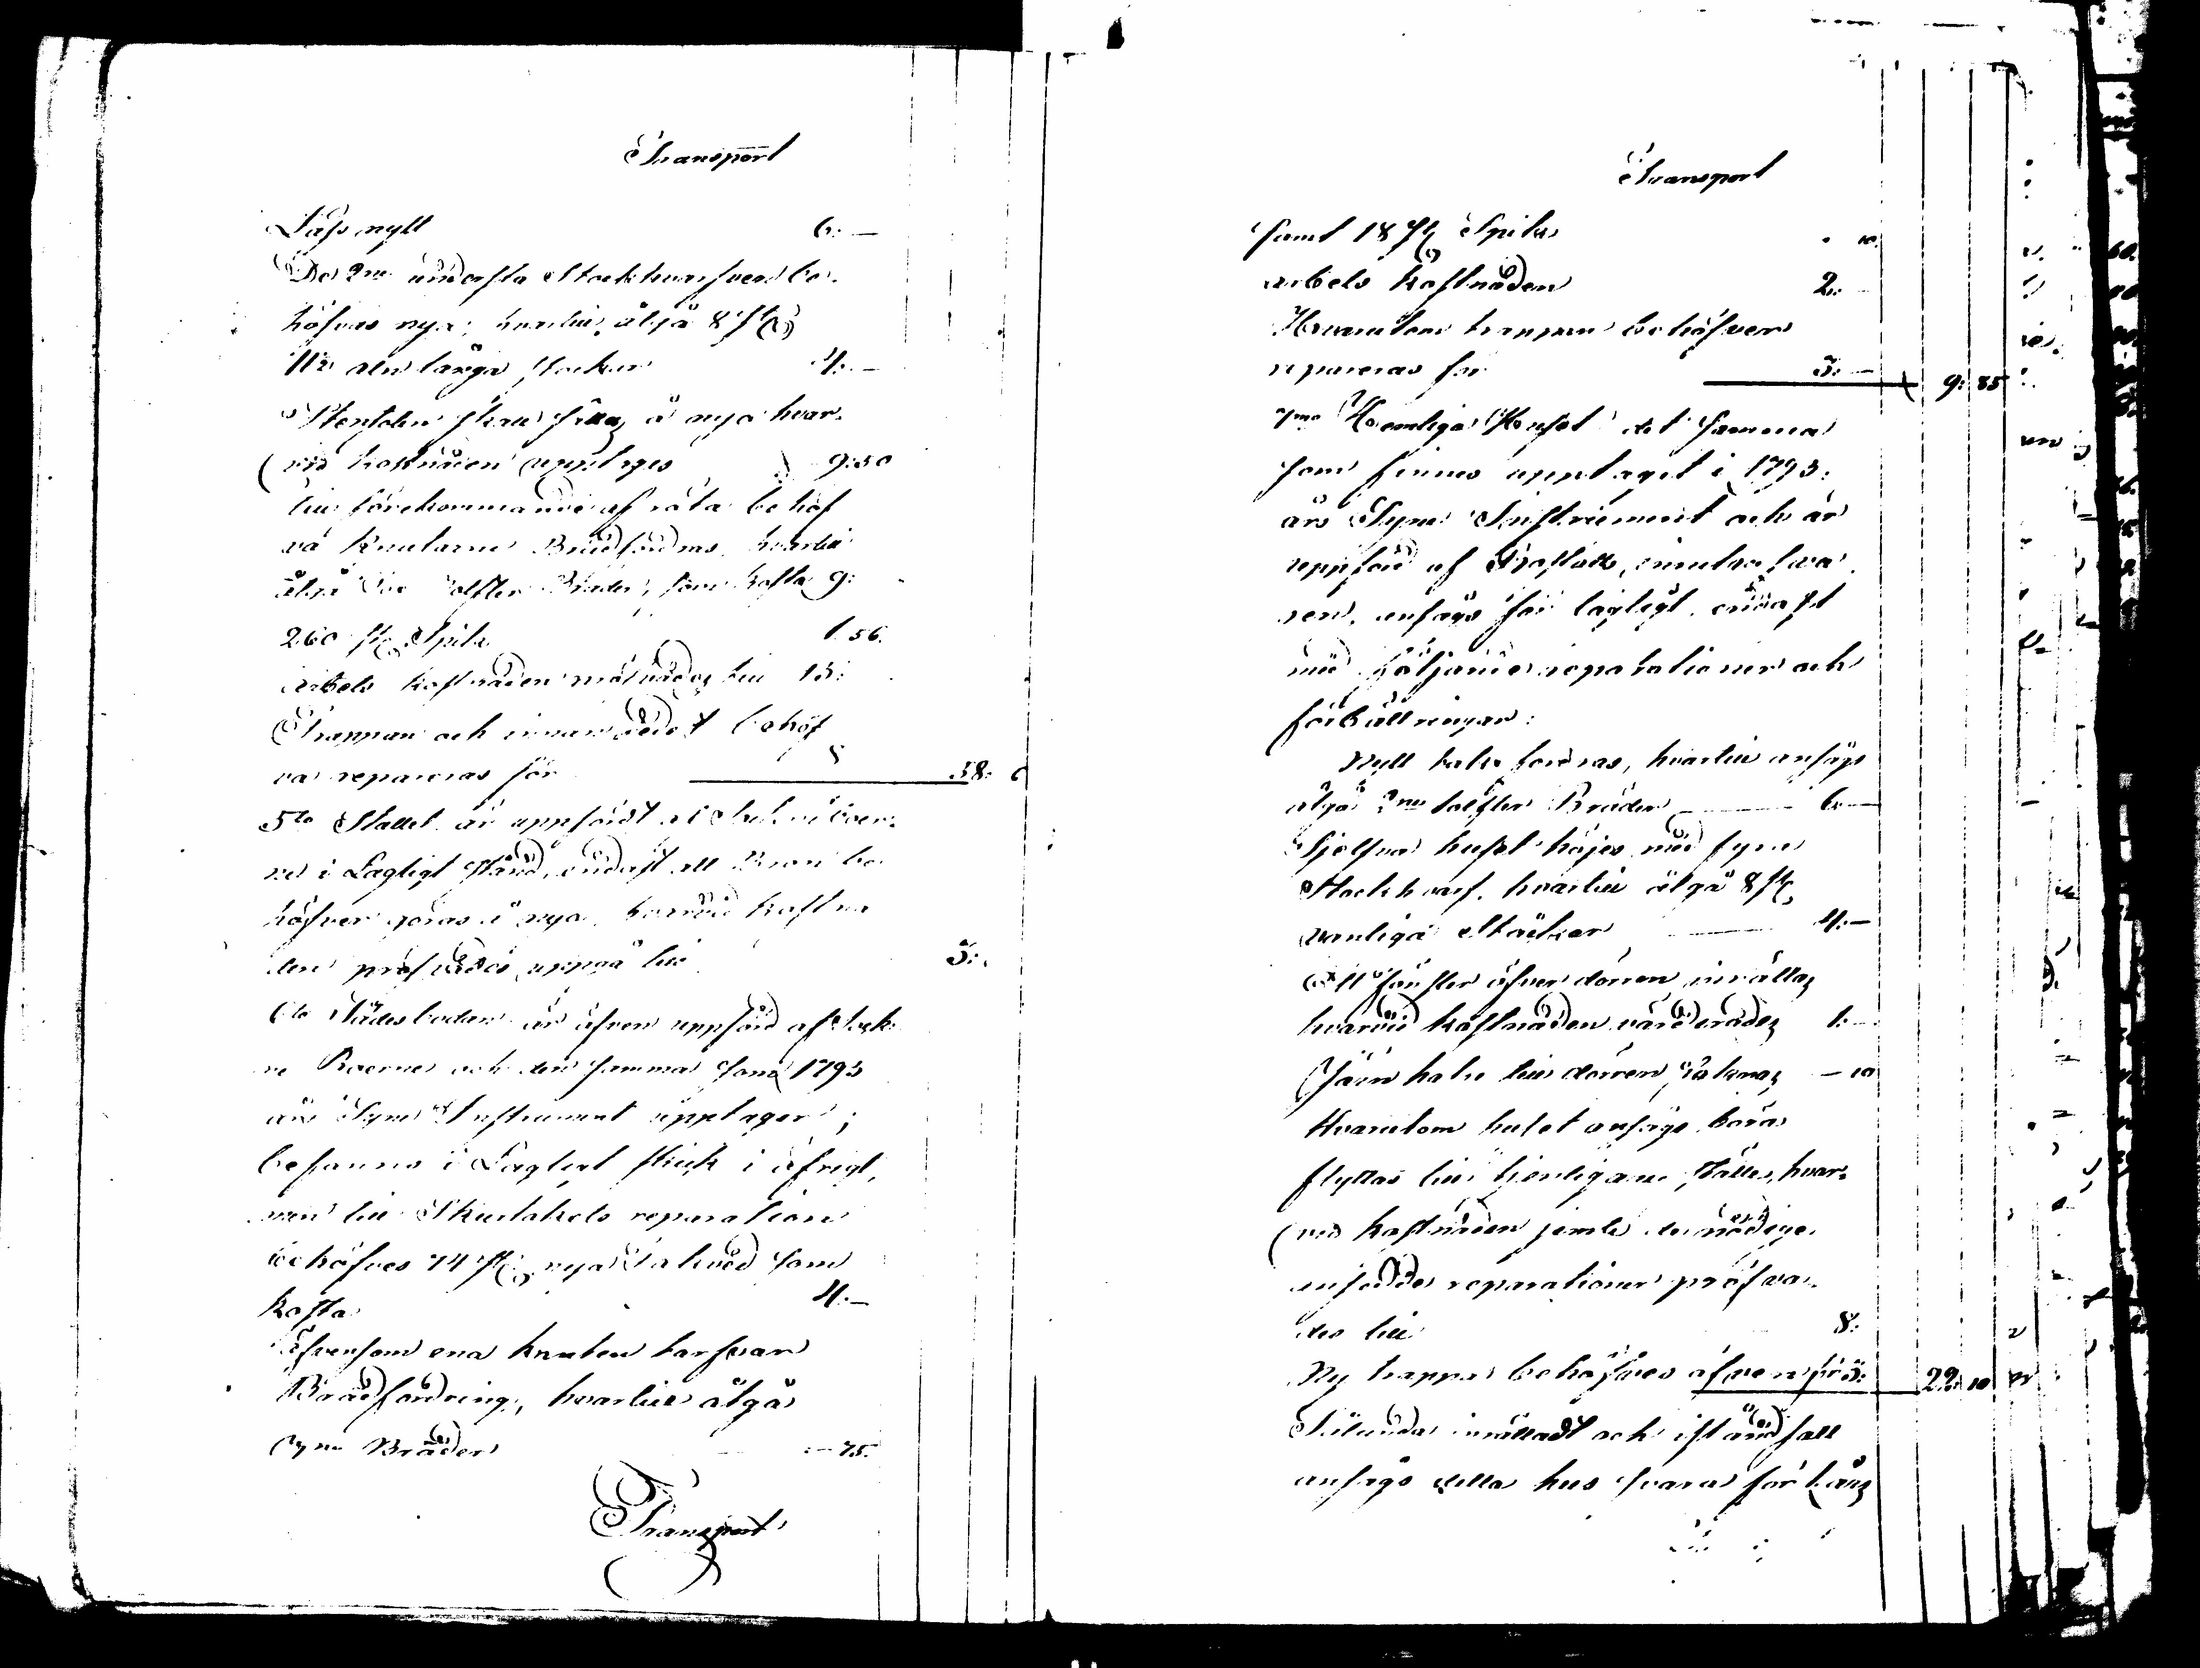 Transport
Låss nytt 6: —
De 2ne understa Stockhvarfven be-
höfvas nya; hvartill åtgå 8 st:
11 1/2 aln långa stockar 4: —
Stenfoten skall sättas å nyo hvar-
vid kostnaden upptages 9:50
till förekommande af röta behöf
va knutarne Brädfodras, hvartill
åtgå tre tolfter Bräder, som kosta 9:
260 st: Spik 1.56.
Arbets kostnaden till 15:
Trappan och innanredet behöf
va repareras för 58:
5to Stallet är uppfördt
i Lagligt stånd, endast att Bron be
höfver göras å nya, hvarvid kostna
den pröfvades uppgå till 5:
6to Sädesboden är äfven uppförd af Stock
och den samma som 1793
års Syne Instrument upptager;
befanns i Lagligt skick i öfrigt,
men till Skultakets reparation
behöfves 74 st: nya takved som
kosta 4: —
Äfvensom ena knuten tarfvar
Brädfordring, hvartill åtgå
Bräder — 75.
Transport
Transport
samt 18 st: Spik 10.
Arbets kostnaden 2: —
Hvarutom trappan behöfver
repareras för 3: — 9: 85
7mo Hemliga Huset det samma
som finnes upptaget i 1793:
års Syne Instrument och är
uppförd af
ansågs för lagligt, endast
med följande reparationer och
förbättringar:
Nytt tak fordras, hvartill ansågs
åtgå 2ne tolfter Bräder — 6: —
Sjelfva huset höjes med fyra
Stockhvarf, hvartill åtgå 8 st:
vanliga Stockar — 4: —
Ett fönster öfver dörren inrättas
hvarvid kostnaden värderades 1: —
Järn hake till dörren saknas — 10
Hvarutom huset ansågs böra
flyttas till tjenligare ställe, hvar-
vid kostnaden jemte de nödige
ansedde reparationer pröfva-
des till 8:
Ny trappa behöfves äfven för 3: 22: 10
Sålunda inrättadt och iståndsatt
ansågs detta hus svara för